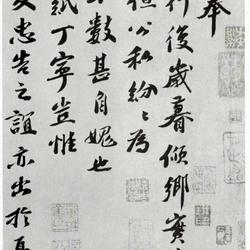 奉
後歲暮傾鄉實
公私紛紛為
數甚自媿也
紙丁寧豈惟
忠告之誼亦出於